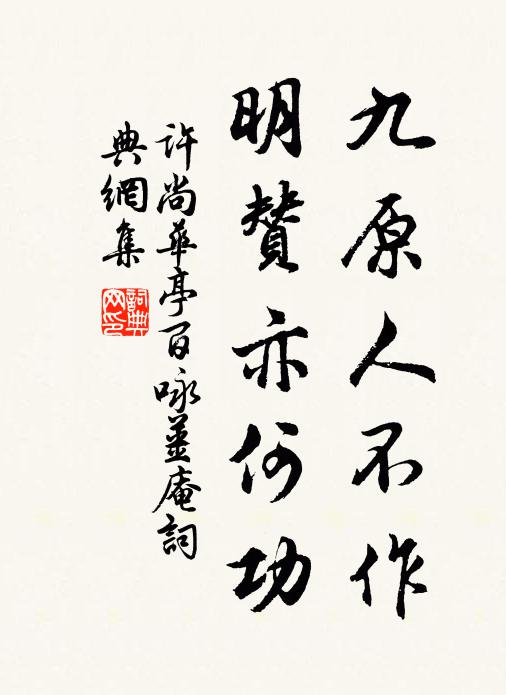 九原人不作
明贊亦何功
許尚華亭百咏薑庵詞
典網集
詞典網印